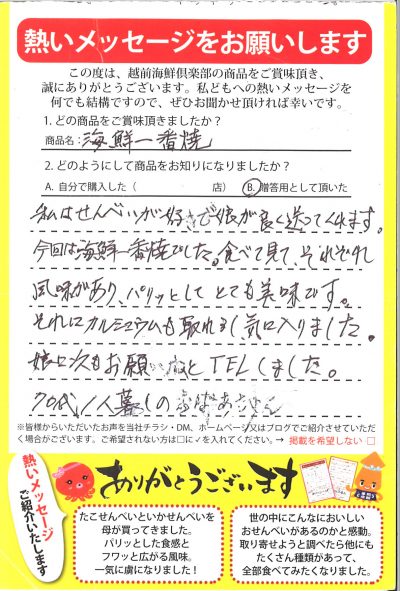 熱いメッセージをお願いします
この度は、越前海鮮倶楽部の商品をご賞味頂き、
誠にありがとうございます。私どもへの熱いメッセージを
何でも結構ですので、ぜひお聞かせ頂ければ幸いです。
1. どの商品をご賞味頂きましたか?
商品名: 海鮮一番焼
2. どのようにして商品をお知りになりましたか?
A. 自分で購入した ( 店) B. 贈答用として頂いた
私はせんべいが好きで娘が良く送ってくれます。
今回は海鮮一番焼でした。食べて見て、それぞれ
風味があり、パリッとしてとても美味です。
それにカルシュウムも取れるし気に入りました。
娘に次もお願い とTELしました。
70代 1人暮しの おばあちゃん
※皆様からいただいたお声を当社チラシ・DM、ホームページ又はブログでご紹介させていただ
く場合がございます。ご希望されない方は□に✓を入れてください。→ 掲載を希望しない □
熱いメッセージ
ご紹介いたします
ありがとうございます
たこせんべいといかせんべいを
母が買ってきました。
パリッとした食感と
フワッと広がる風味。
一気に虜になりました!
世の中にこんなにおいしい
おせんべいがあるのかと感動。
取り寄せようと調べたら他にも
たくさん種類があって、
全部食べてみたくなりました。